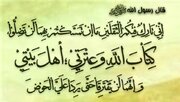 قال رسول الله ﷺ
إني تارك فيكم الثقلين ما إن تمسكتم بهما لن تضلوا
كتاب الله وعترتي أهل بيتي
وإنهما لن يفترقا حتى يردا علي الحوض